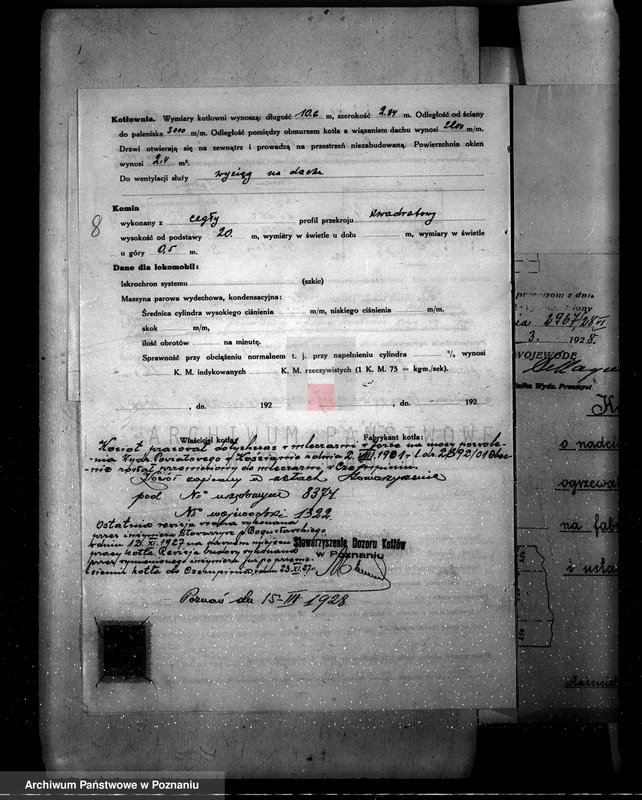 Kotłownia. Wymiary kotłowni wynoszą: długość 10.6 m, szerokość 2.84 m. Odległość od ściany
do paleniska 3000 m/m. Odległość pomiędzy obmurzem kotła a wiązaniem dachu wynosi 2200 m/m.
Drzwi otwierają się na zewnątrz i prowadzą na przestrzeń niezabudowaną. Powierzchnia okien
wynosi 2.4 m².
Do wentylacji służy wyciąg na dachu
8
Komin
wykonany z cegły profil przekroju kwadratowy
wysokość od podstawy 20. m, wymiary w świetle u dołu m, wymiary w świetle
u góry 0,5 m.
Dane dla lokomobil:
Iskrochron systemu (szkic)
Maszyna parowa wydechowa, kondensacyjna:
Średnica cylindra wysokiego ciśnienia m/m, niskiego ciśnienia m/m.
skok m/m,
ilość obrotów na minutę.
Sprawność przy obciążeniu normalnem t. j. przy napełnieniu cylindra % wynosi
K. M. indykowanych K. M. rzeczywistych (1 K. M. 75 = kgm./sek).
, dn. 192 , dn. 192
ARCHIWUM PAŃSTWOWE
Właściciel kotła: Fabrykant kotła:
Kocioł pracował dotychczas w mleczarni w na mocy pozwole-
nia Wydz. Powiatowego w Kościanie z dnia 2. 1901 r. l. dz. 2892/01 Obec-
nie został przeniesiony do mleczarni w Czempiniu.
Kocioł zapisany w aktach Stowarzyszenia
pod № 8374
№ wojewódzki 1322
Ostatnia rewizja wodna wykonana
przez inżyniera Stowarzysz. p. Bogusławskiego
w dniu 12. XI. 1927 na miejscu
pracy kotła. Rewizja budowy wykonana
przez inżyniera już po przenie-
sieniu kotła do Czempinia, w dniu 23. XI. 27 r.
Stowarzyszenie Dozoru Kotłów
w Poznaniu
Poznań dn 15-III 1928
z dnia
2967/28 VI
3. 1928.
WOJEWODĘ
Wydz. Przemysł.
K
o nadci
ogrzewa
na fab
i usta
Właściciel
Archiwum Państwowe w Poznaniu